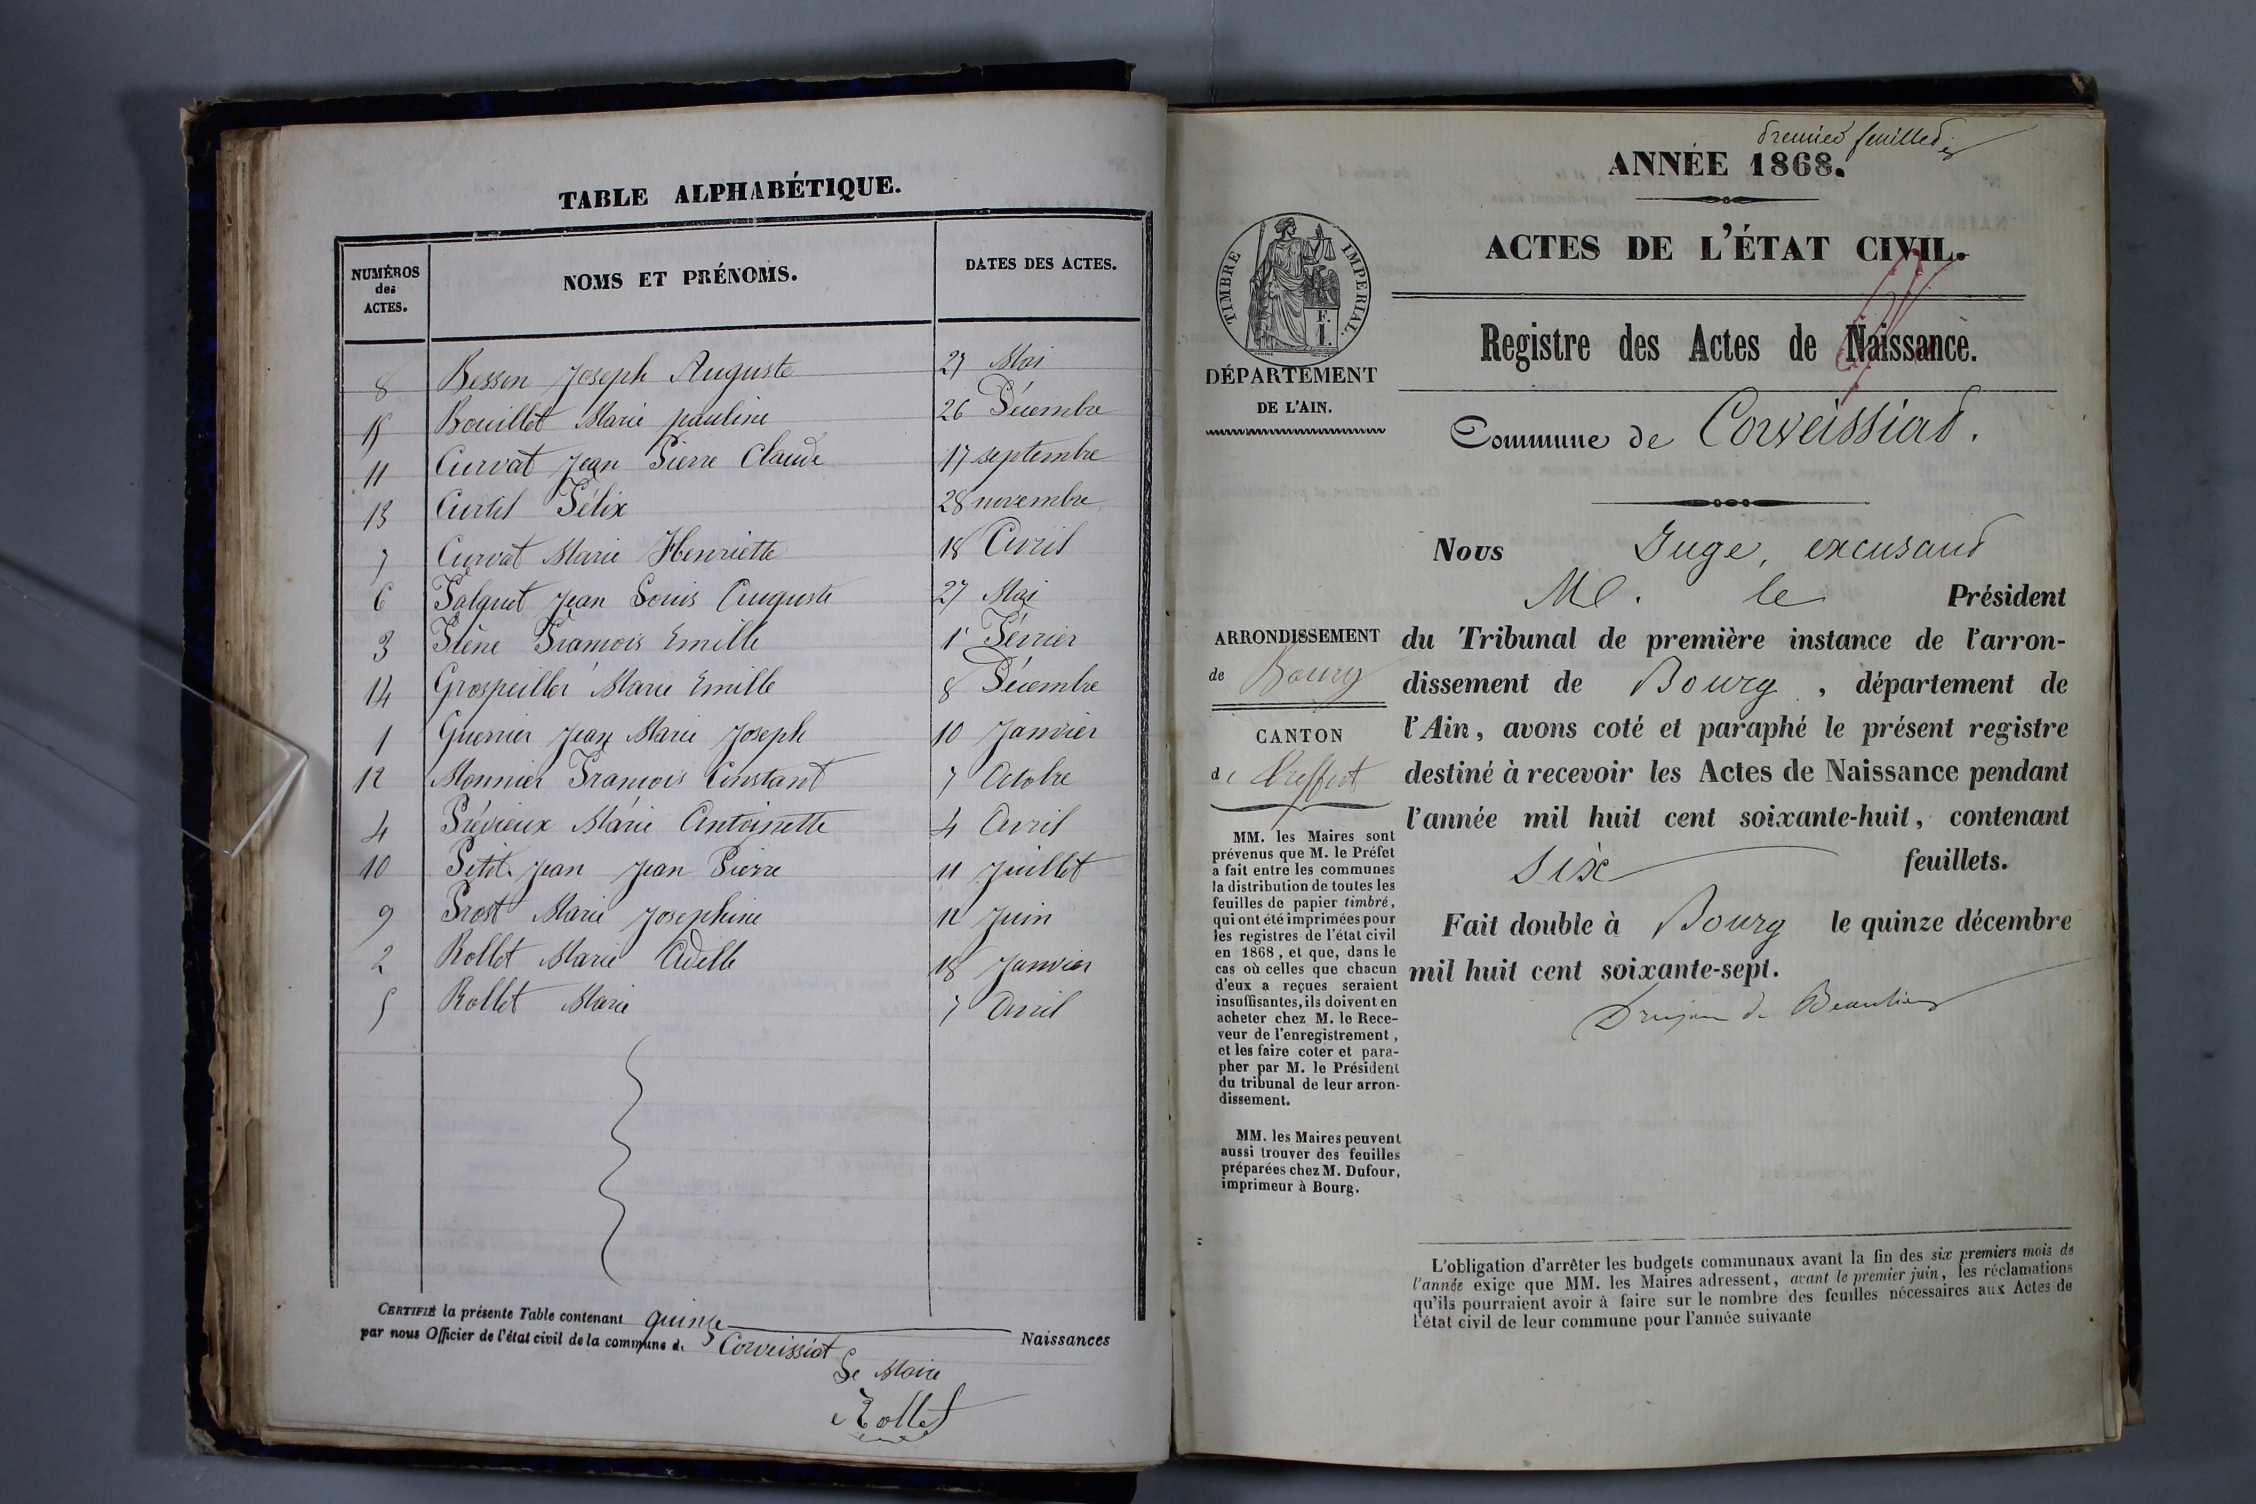 TABLE ALPHABÉTIQUE.
NUMÉROS des ACTES. NOMS ET PRÉNOMS. DATES DES ACTES.
8 Besson Joseph Auguste 27 Mai
15 Bouillet Marie pauline 26 Décembre
11 Curvat Jean Pierre Claude 17 septembre
13 Curtil Félix 28 novembre
7 Curvat Marie Henriette 18 Avril
6 Falquet Jean Louis Auguste 27 Mai
3 François Emille 1er Février
14 Grospeiller Marie Emille 8 Décembre
1 Guerrier Jean Marie Joseph 10 Janvier
12 Monnier François Constant 7 Octobre
4 Prévieux Marie Antoinette 4 Avril
10 Petit-Jean Jean Pierre 11 Juillet
9 Prost Marie Josephine 12 Juin
2 Rollet Marie Adelle 18 Janvier
5 Rollet Marie 7 Avril
CERTIFIÉ la présente Table contenant quinze Naissances
par nous Officier de l'état civil de la commune de Corveissiat
Le Maire
Rollet
premier feuillet
ANNÉE 1868.
ACTES DE L'ÉTAT CIVIL.
TIMBRE IMPERIAL.
F. I.
Registre des Actes de Naissance.
DÉPARTEMENT
DE L'AIN.
Commune de Corveissiat.
Nous Juge, excusant
M. le Président
du Tribunal de première instance de l'arron-
dissement de Bourg, département de
l'Ain, avons coté et paraphé le présent registre
destiné à recevoir les Actes de Naissance pendant
l'année mil huit cent soixante-huit, contenant
six feuillets.
Fait double à Bourg le quinze décembre
mil huit cent soixante-sept.
ARRONDISSEMENT
de Bourg
CANTON
de Treffort
MM. les Maires sont
prévenus que M. le Préfet
a fait entre les communes
la distribution de toutes les
feuilles de papier timbré,
qui ont été imprimées pour
les registres de l'état civil
en 1868, et que, dans le
cas où celles que chacun
d'eux a reçues seraient
insuffisantes, ils doivent en
acheter chez M. le Rece-
veur de l'enregistrement,
et les faire coter et para-
pher par M. le Président
du tribunal de leur arron-
dissement.
MM. les Maires peuvent
aussi trouver des feuilles
préparées chez M. Dufour,
imprimeur à Bourg.
L'obligation d'arrêter les budgets communaux avant la fin des six premiers mois de
l'année exige que MM. les Maires adressent, avant le premier juin, les réclamations
qu'ils pourraient avoir à faire sur le nombre des feuilles nécessaires aux Actes de
l'état civil de leur commune pour l'année suivante